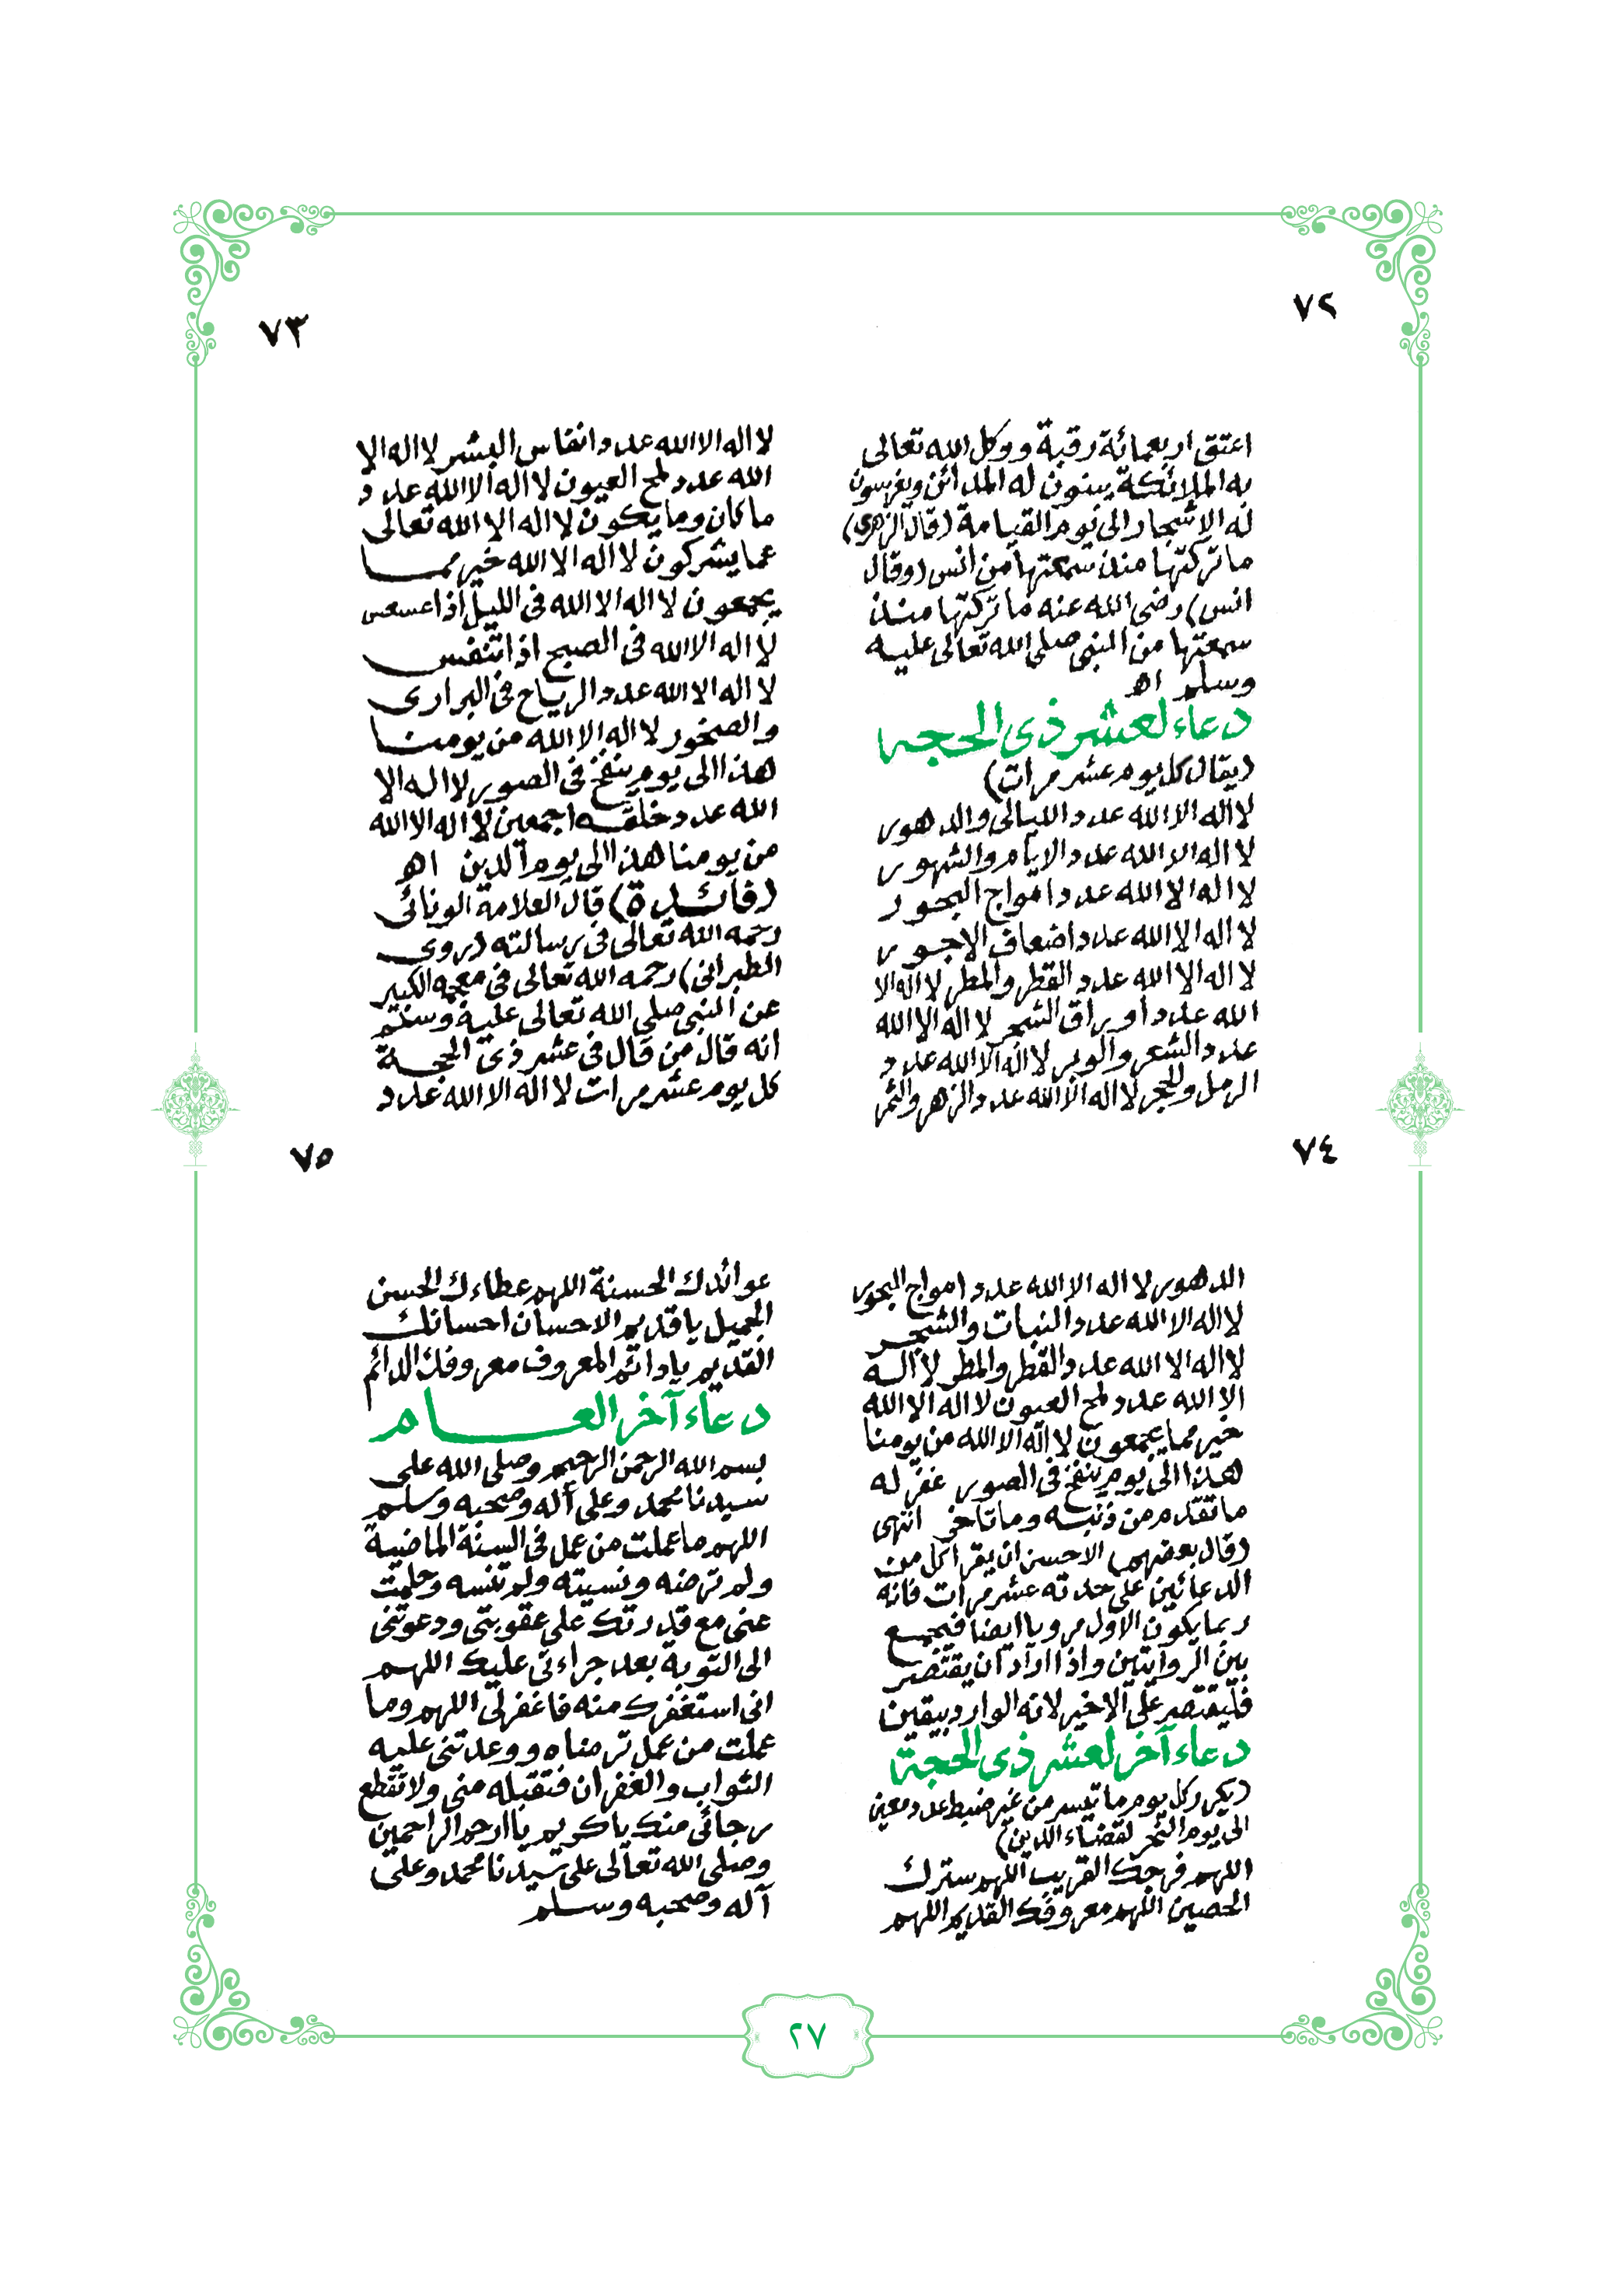 ٧٢
اعتق اربعمائة رقبة ووكل الله تعالى
به الملائكة يبنون له المدائن ويغرسون
له الاشجار الى يوم القيامة (قال الزهرى)
ما تركتها منذ سمعتها من انس (وقال
انس) رضى الله عنه ما تركتها منذ
سمعتها من النبى صلى الله تعالى عليه
وسلم اه
دعاء لعشر ذى الحجه
(يقال كل يوم عشر مرات)
لا اله الا الله عدد الليالى والدهور
لا اله الا الله عدد الايام والشهور
لا اله الا الله عدد امواج البحور
لا اله الا الله عدد اضعاف الاجور
لا اله الا الله عدد القطر والمطر لا اله الا
الله عدد أوراق الشجر لا اله الا الله
عدد الشعر والوبر لا اله الا الله عدد
الرمل والحجر لا اله الا الله عدد الزهر والثمر
٧٣
لا اله الا الله عدد انفاس البشر لا اله الا
الله عدد لمح العيون لا اله الا الله عدد
ما كان وما يكون لا اله الا الله تعالى
عما يشركون لا اله الا الله خير مما
يجمعون لا اله الا الله فى الليل اذا عسعس
لا اله الا الله فى الصبح اذا تنفس
لا اله الا الله عدد الرياح فى البرارى
والصخور لا اله الا الله من يومنا
هذا الى يوم ينفخ فى الصور لا اله الا
الله عدد خلقه اجمعين لا اله الا الله
من يومنا هذا الى يوم الدين اه
(فائدة) قال العلامة الونائى
رحمه الله تعالى فى رسالته (روى
الطبرانى) رحمه الله تعالى فى معجمه الكبير
عن النبى صلى الله تعالى عليه وسلم
انه قال من قال فى عشر ذى الحجة
كل يوم عشر مرات لا اله الا الله عدد
٧٤
الدهور لا اله الا الله عدد امواج البحور
لا اله الا الله عدد النبات والشجر
لا اله الا الله عدد القطر والمطر لا اله
الا الله عدد لمح العيون لا اله الا الله
خير مما يجمعون لا اله الا الله من يومنا
هذا الى يوم ينفخ فى الصور غفر له
ما تقدم من ذنبه وما تاخر انتهى
(قال بعضهم) الاحسن ان يقرأ كل من
الدعائين على حدته عشر مرات فانه
ربما يكون الاول مرويا ايضا فيجمع
بين الروايتين واذا اراد ان يقتصر
فليقتصر على الاخير لانه الوارد بيقين
دعاء آخر لعشر ذى الحجة
(يكرر كل يوم ما تيسر من غير ضبط عدد معين
الى يوم النحر لقضاء الدين)
اللهم فرجك القريب اللهم سترك
الحصين اللهم معروفك القديم اللهم
٧٥
عوائدك الحسنة اللهم عطاءك الحسن
الجميل يا قديم الاحسان احسانك
القديم يا دائم المعروف معروفك الدائم
دعاء آخر العام
بسم الله الرحمن الرحيم وصلى الله على
سيدنا محمد وعلى أله وصحبه وسلم
اللهم ما عملت من عمل فى السنة الماضية
ولم ترضه ونسيته ولم تنسه وحلمت
عنى مع قدرتك على عقوبتى ودعوتنى
الى التوبة بعد جراءتى عليك اللهم
انى استغفرك منه فاغفر لى اللهم وما
عملت من عمل ترضاه ووعدتنى عليه
الثواب والغفران فتقبله منى ولا تقطع
رجائى منك يا كريم يا ارحم الراحمين
وصلى الله تعالى على سيدنا محمد وعلى
آله وصحبه وسلم
٢٧